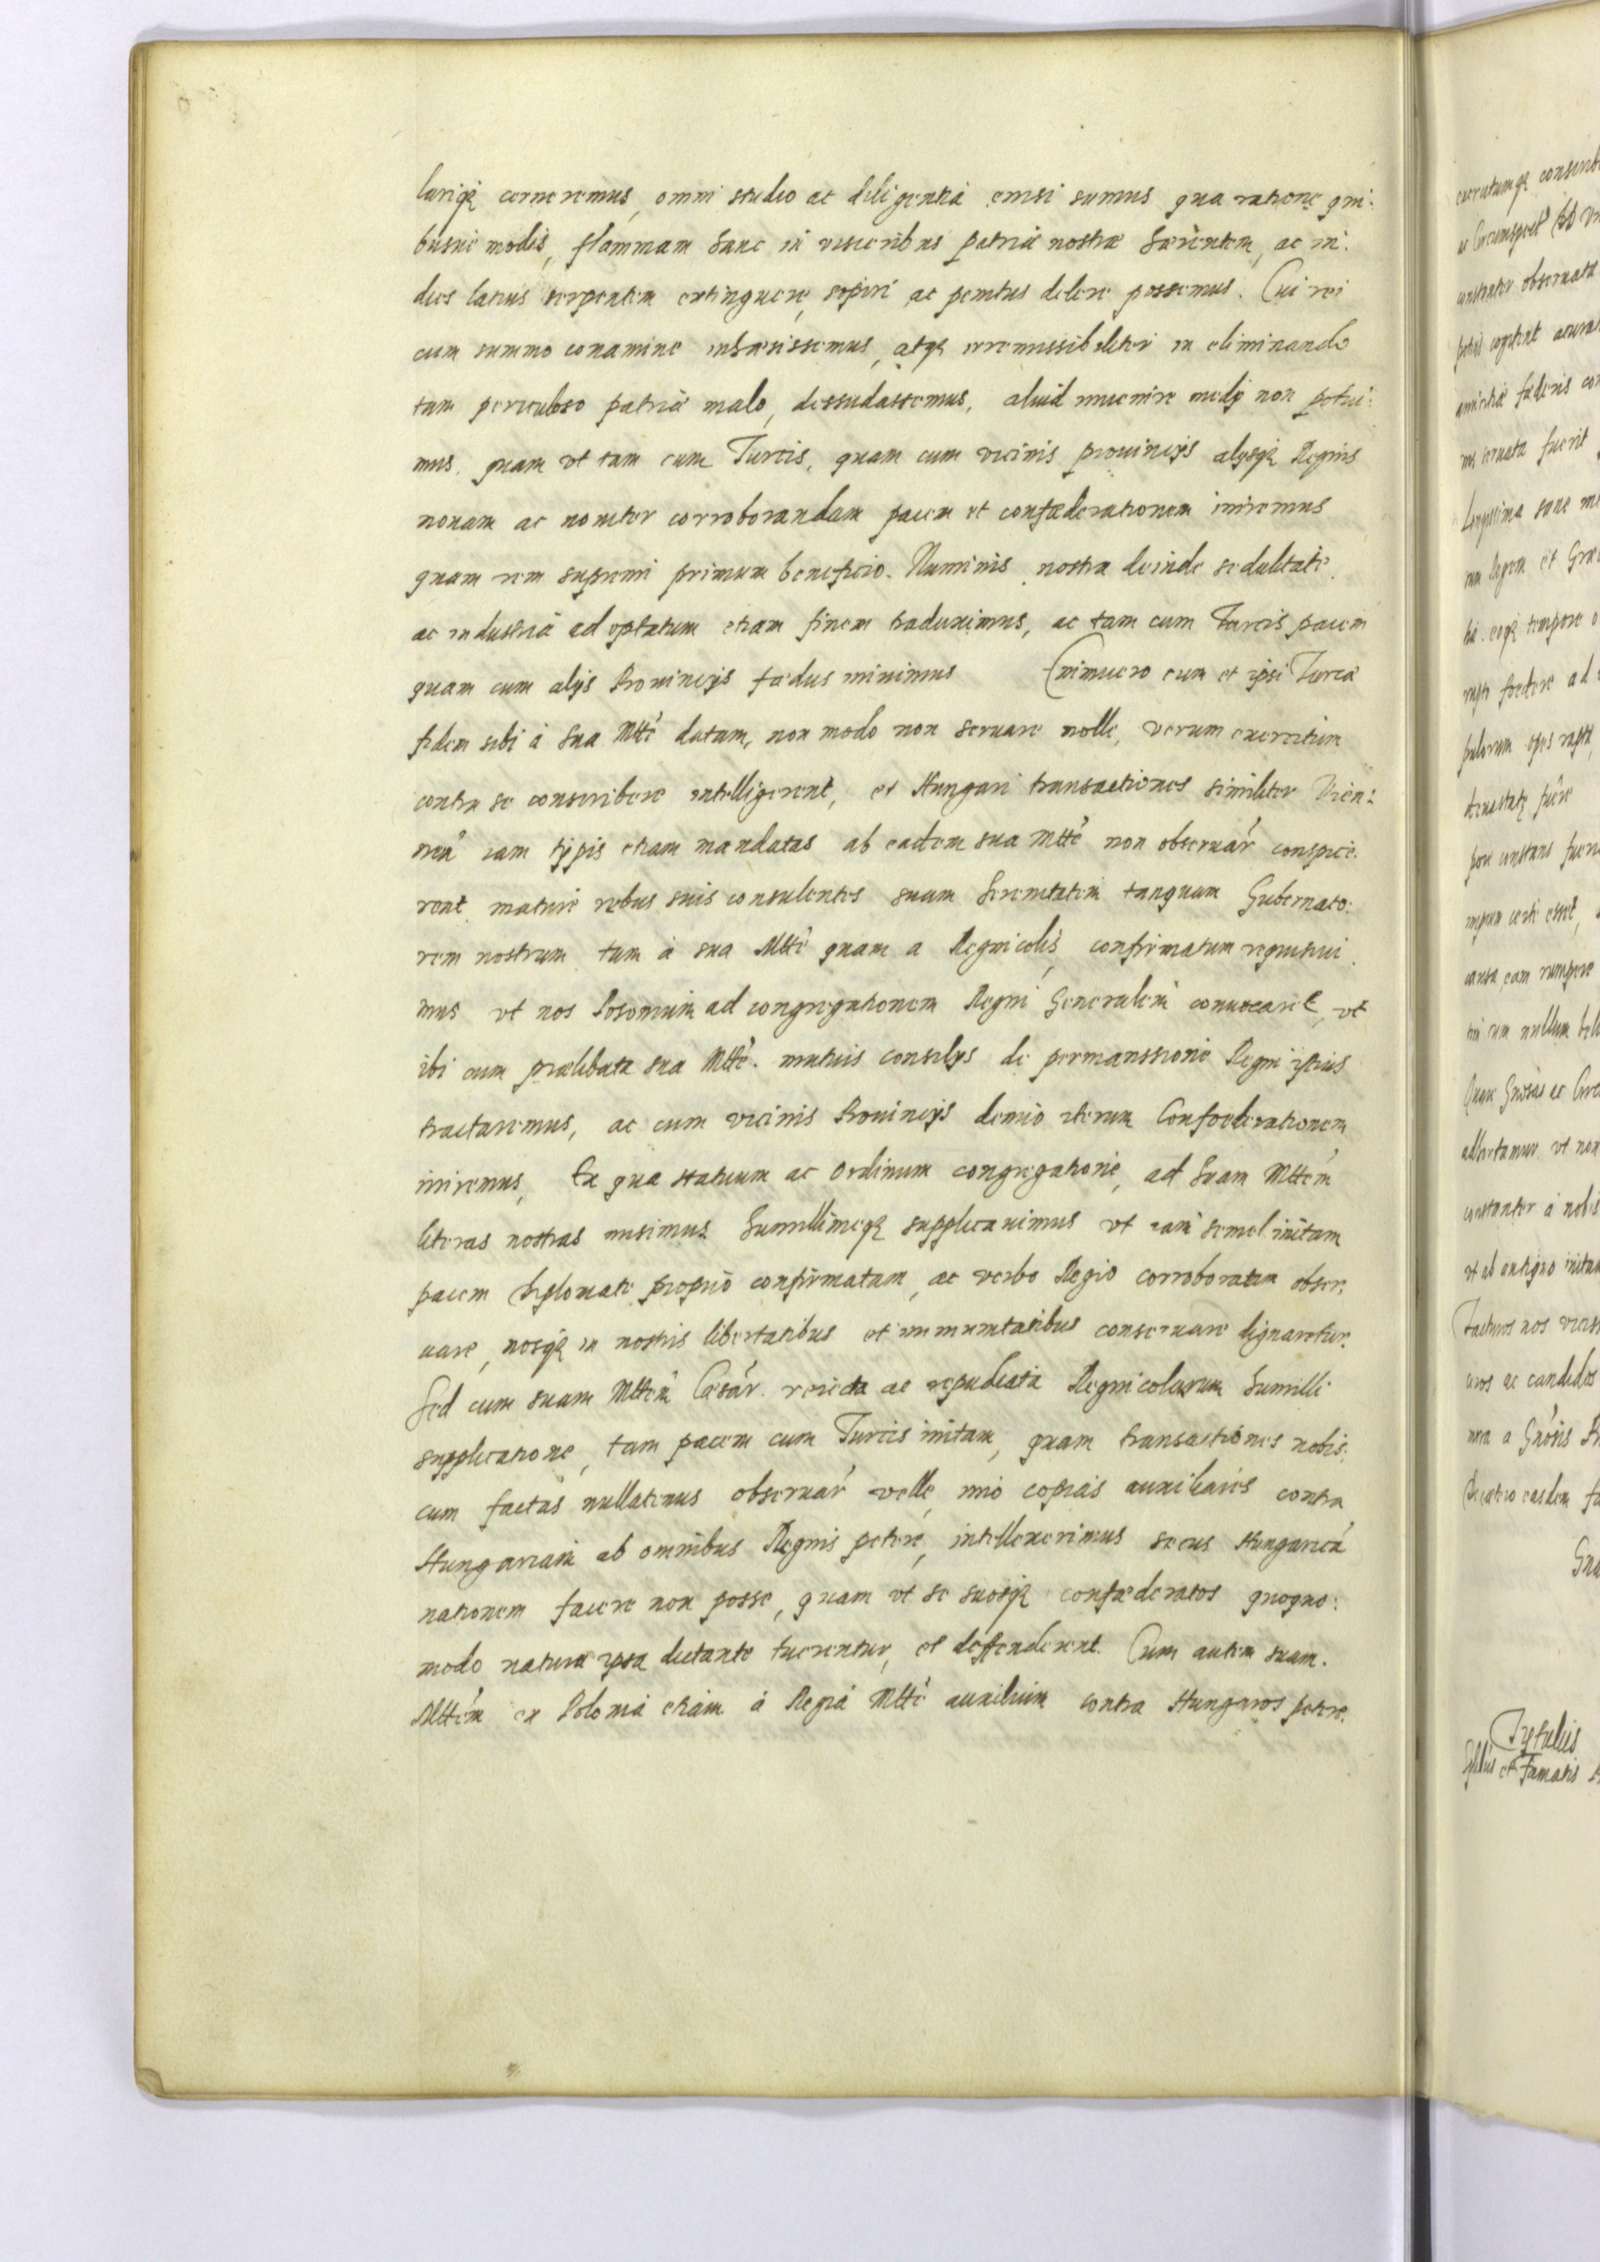 lariq3 cerneremus, omni studio ac diligentia enisi sumus qua ratione qui:
busue modis, flammam hanc in visceribus patriæ nostræ hærentem, ac in:
dies latius serpentem extinguere, sopire ac penitus delere possemus. Cui rei
cum summo conamine inhæsissemus, atq3 irremissibiliter in eliminando
tam periculoso patriæ malo, dessudassemus, aliud inuenire medij non potui:
mus, quam vt tam cum Turcis, quam cum vicinis prouincijs alijsq3 Regnis
nouam ac nouiter corroborandam pacem et confæderationem iniremus
quam rem supremi primum beneficio Numinis nostra deinde sedulitate
ac industria ad optatum etiam finem traduximus, ac tam cum Turcis pacem
quam cum alijs Prouincijs fædus iniuimus Enimuero cum et ipsi Turcæ
fidem sibi à sua Mtte datam, non modo non seruare nolle, verum exercitum
contra se conscribere intelligerent, et Hungari transactiones similiter Vien:
nen iam typis etiam mandatas ab eadem sua Mtte non obseruar conspice:
rent mature rebus suis consulentes suam Serenitatem tanquam Gubernato:
rem nostrum tam à sua Mtte quam a Regnicolis confirmatum requisiui:
mus vt nos Posonium ad congregationem Regni Generalem conuocaret, vt
ibi cum prælibata sua Mtte mutuis consilijs de permanssione Regni istius
tractaremus, ac cum vicinis Prouincijs denuo iterum Confoederationem
iniremus, Ex qua statuum ac Ordinum congregatione, ad Suam Mttem
literas nostras misimus humillimeq3 supplicauimus vt iam semel initam
pacem diplomate proprio confirmatam, ac verbo Regio corroboratam obser:
uare, nosq3 in nostris libertatibus et immunitatibus conseruare dignaretur.
Sed cum suam Mttem Cæsar. reiecta ac repudiata Regnicolarum humilli
supplicatione, tam pacem cum Turcis initam, quam transactiones nobis:
cum factas nullatenus obseruar velle, imo copias auxiliares contra
Hungariam ab omnibus Regnis petere, intellexerimus secus Hungarica
nationem facere non posse, quam vt se suosq3 confæderatos quoquo:
modo natura ipsa dictante tuerentur, et deffenderent. Cum autem suam
Mttem ex Polonia etiam à Regia Mtte auxilium contra Hungaros petere.